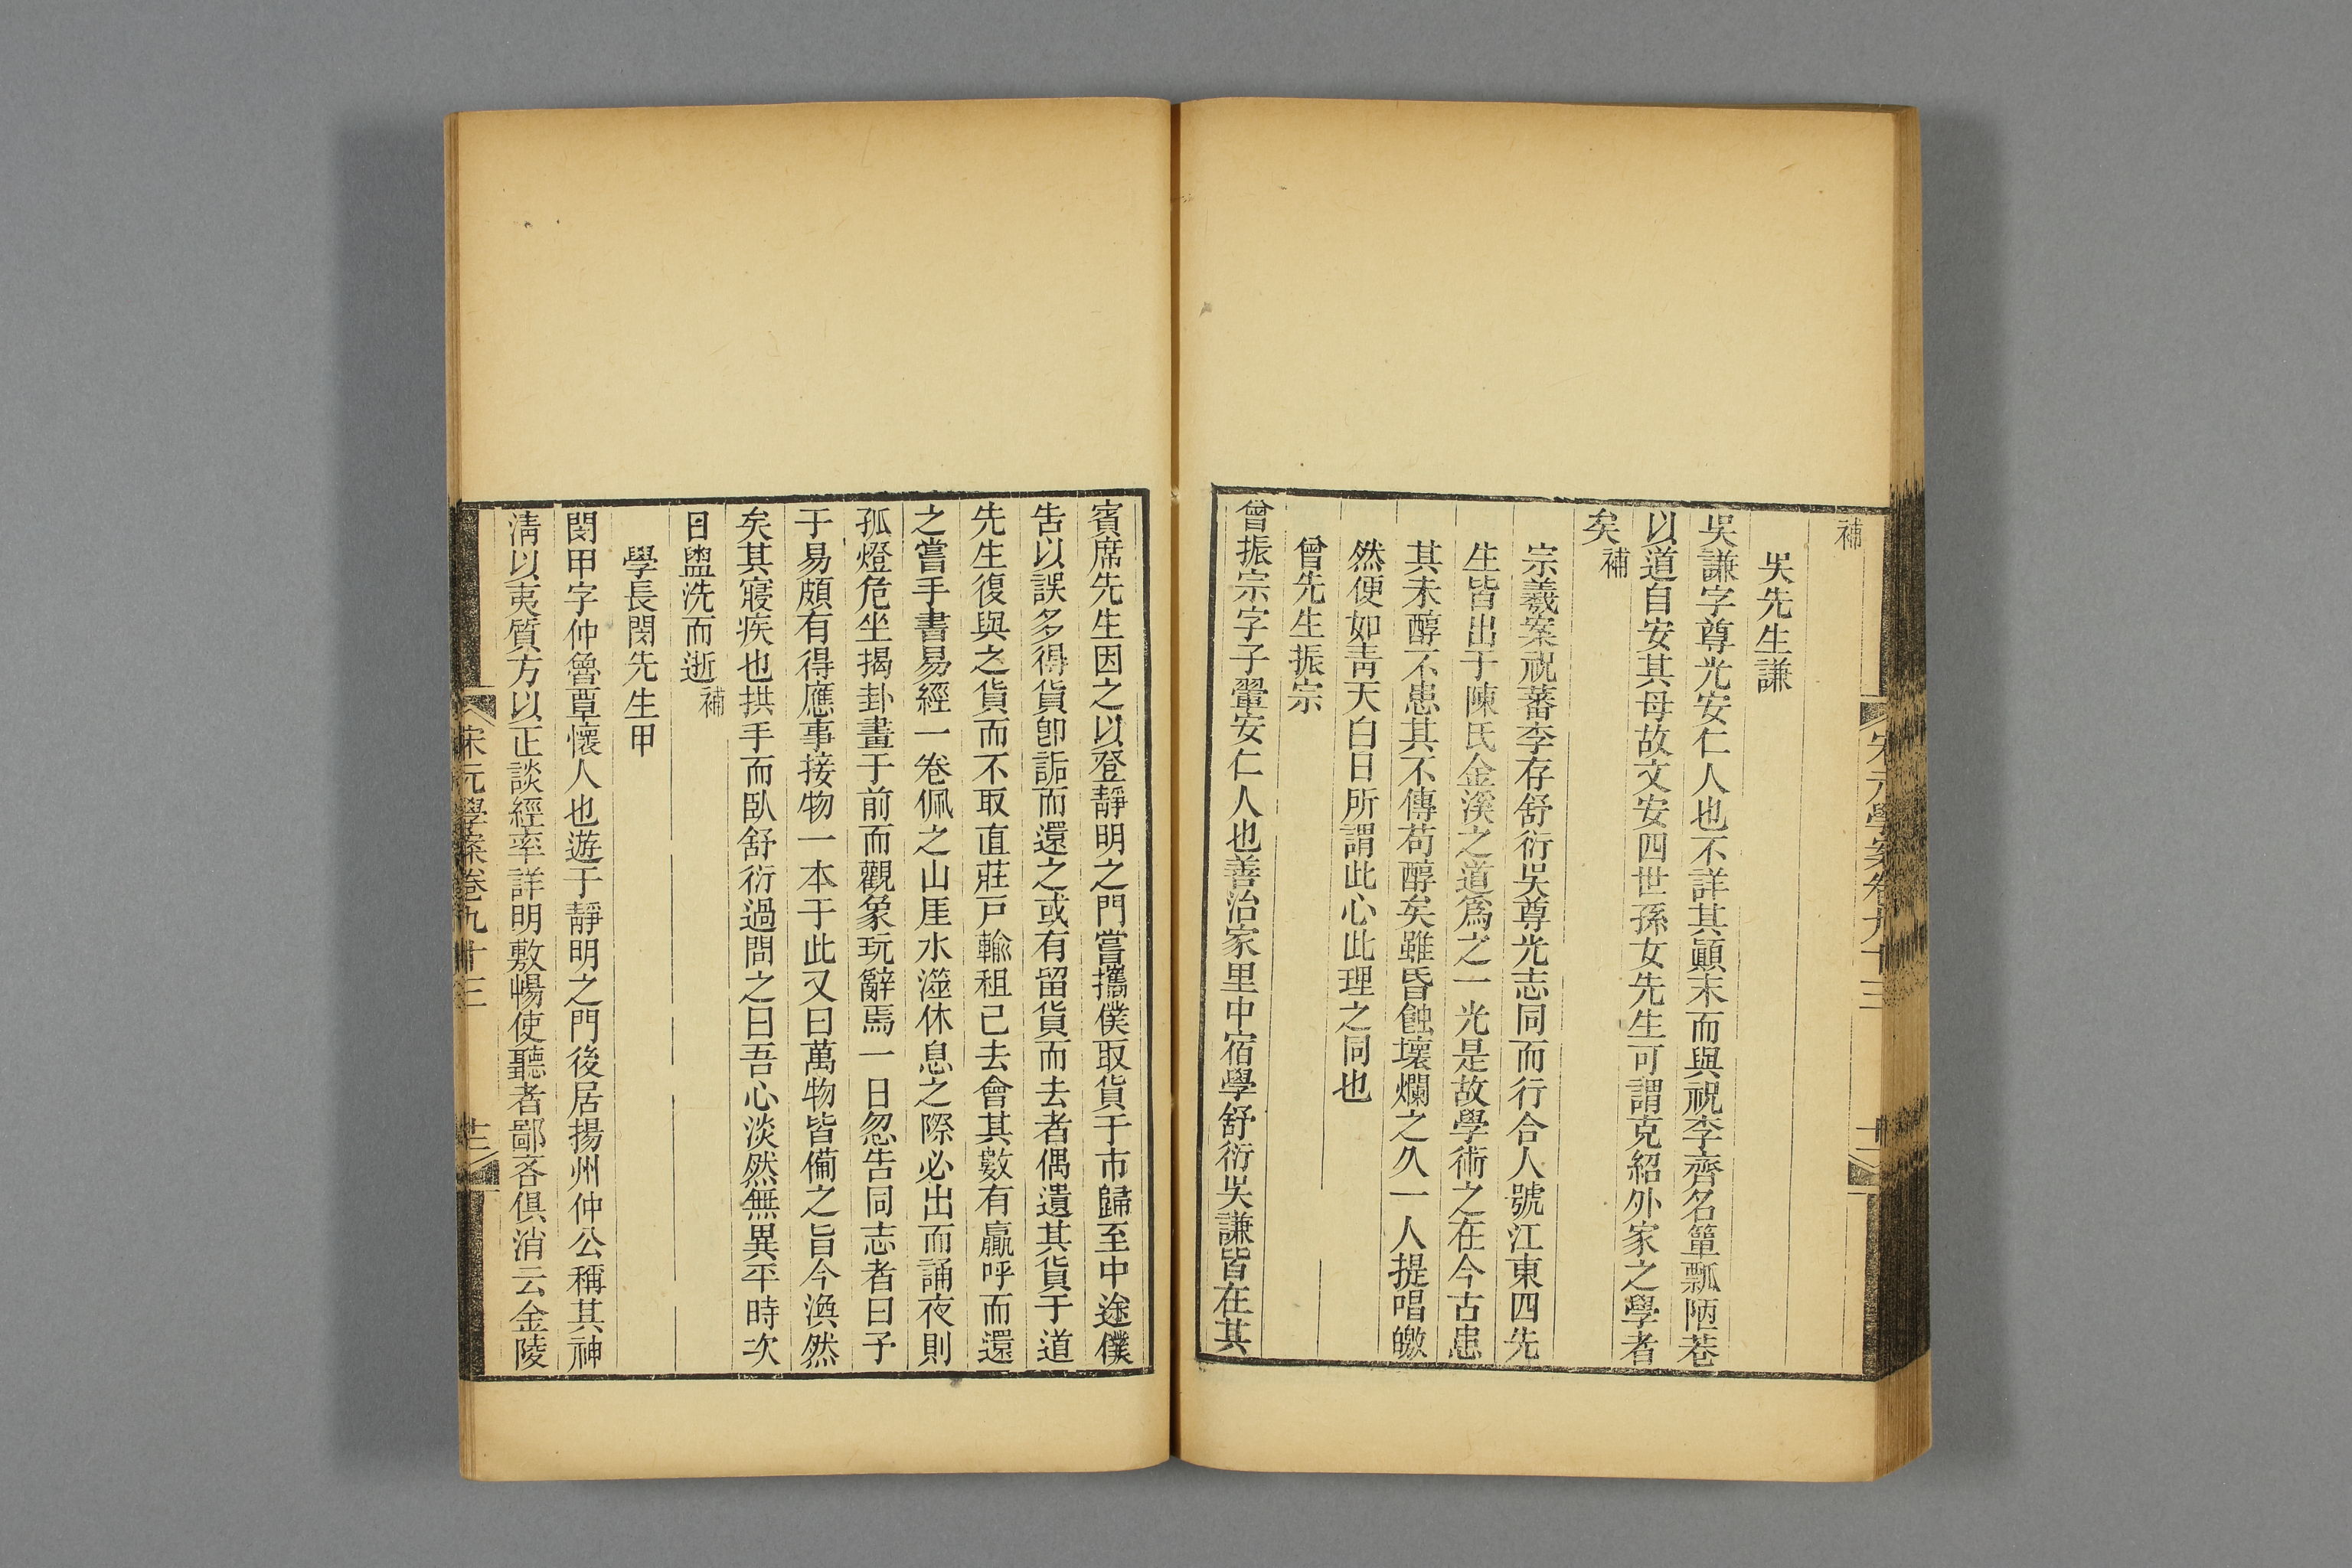 宋元學案卷九十三
補
吳先生謙
吳謙字尊光安仁人也不詳其顚末而與祝李齊名簞瓢陋巷
以道自安其母故文安四世孫女先生可謂克紹外家之學者
矣補
宗羲案祝蕃李存舒衍吳尊光志同而行合人號江東四先
生皆出于陳氏金溪之道爲之一光是故學術之在今古患
其未醇不患其不傳苟醇矣雖昏蝕壞爛之久一人提唱皦
然便如靑天白日所謂此心此理之同也
曾先生振宗
曾振宗字子翬安仁人也善治家里中宿學舒衍吳謙皆在其
賓席先生因之以登靜明之門嘗攜僕取貨于市歸至中途僕
告以誤多得貨卽詬而還之或有留貨而去者偶遺其貨于道
先生復與之貨而不取直莊戸輸租已去會其數有贏呼而還
之嘗手書易經一卷佩之山厓水澨休息之際必出而誦夜則
孤燈危坐揭卦畫于前而觀象玩辭焉一日忽告同志者曰予
于易頗有得應事接物一本于此又曰萬物皆備之旨今渙然
矣其寢疾也拱手而臥舒衍過問之曰吾心淡然無異平時次
日盥洗而逝補
學長閔先生甲
閔甲字仲魯覃懷人也遊于靜明之門後居揚州仲公稱其神
淸以夷質方以正談經率詳明敷暢使聽者鄙吝俱消云金陵
宋元學案卷九十三